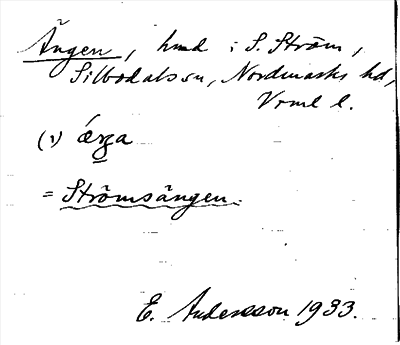 Ängen, hmd i S. Ström,
Silbodals sn, Nordmarks hd,
Vrml l.
(1)
= Strömsängen.
E. Andersson 1933.